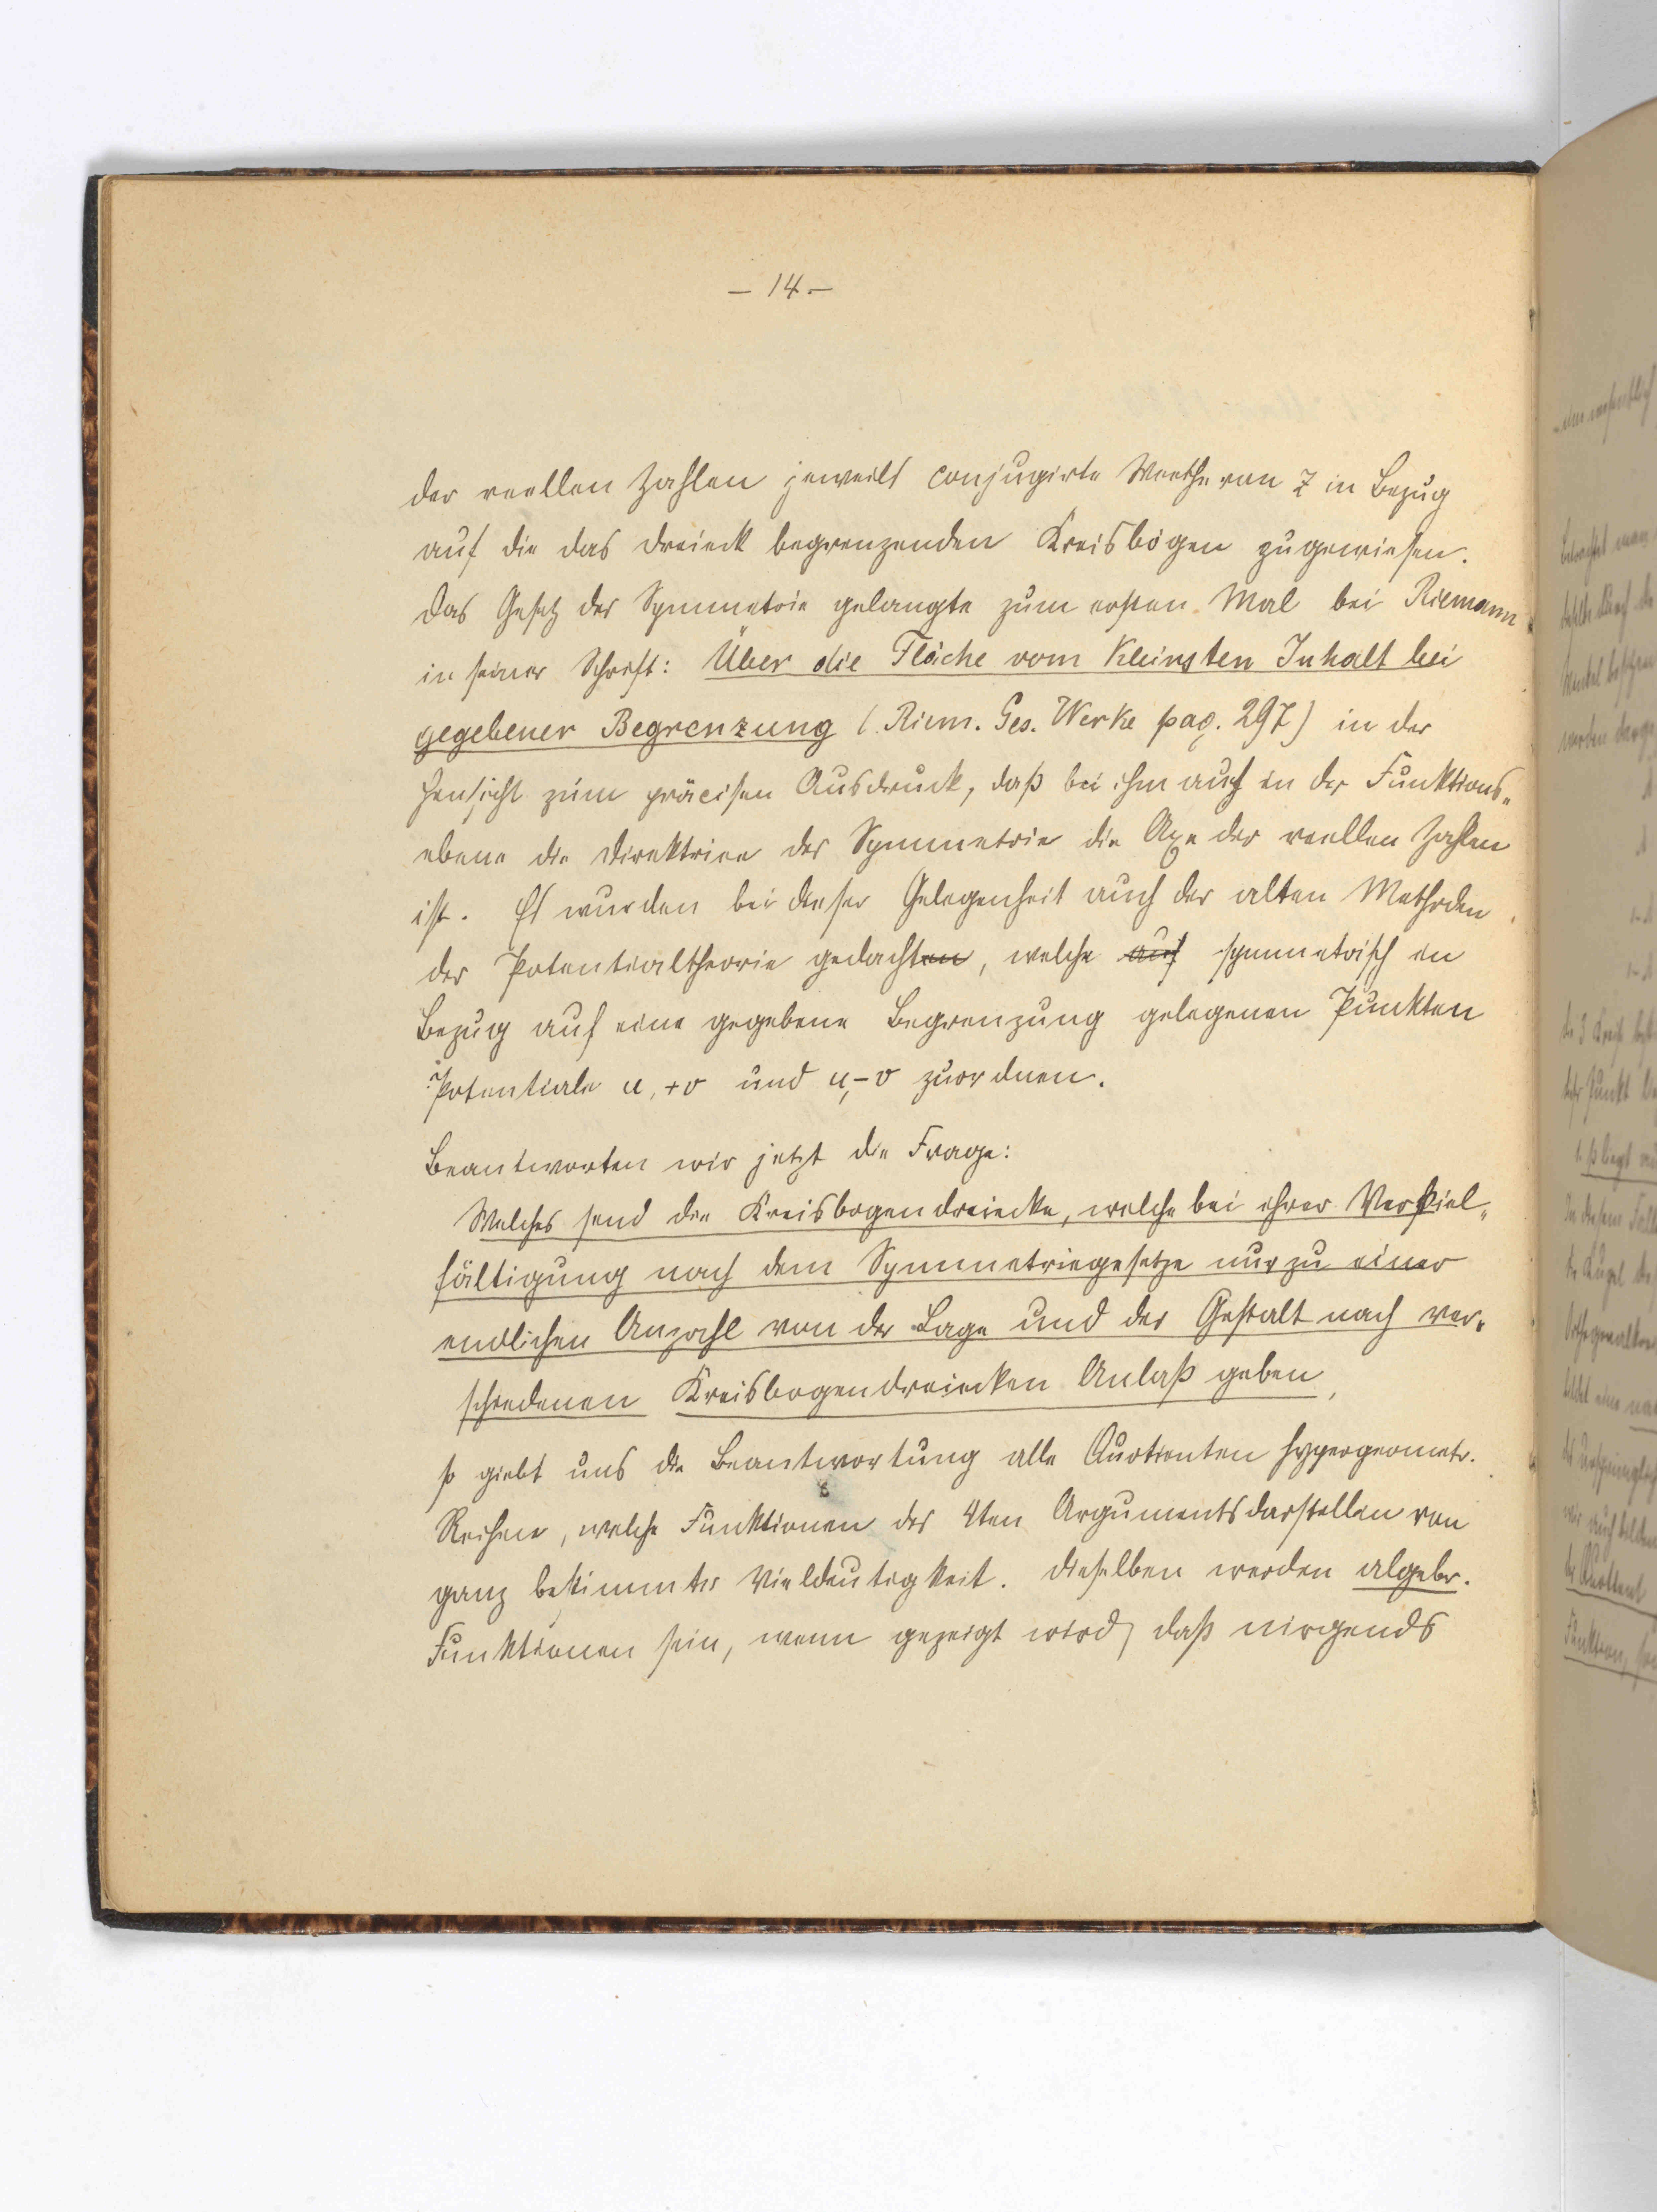 – 14. –
der reellen Zahlen jeweils conjugirte Werthe von Z in Bezug
auf die das Dreieck begrenzenden Kreisbögen zugewiesen.
Das Gesetz der Symmetrie gelangte zum ersten Mal bei Riemann
in seiner Schrift: Über die Fläche vom Kleinsten Inhalt bei
gegebener Begrenzung (Riem. Ges. Werke pag. 297) in der
Hinsicht zum präcisen Ausdruck, daß bei ihm auch in der Funktions„
ebene die Direktrice der Symmetrie die Axe der reellen Zahlen
ist. Es wurden bei dieser Gelegenheit auch der alten Methoden
der Potentialtheorie gedachten, welche auf symmetrisch in
Bezug auf eine gegebene Begrenzung gelegenen Punkten
Potentiale u, +v und u, –v zuordnen.
Beantworten wir jetzt die Frage:
Welches sind die Kreisbogendreiecke, welche bei ihrer Verviel„
fältigung nach dem Symmetriegesetze nur zu einer
endlichen Anzahl von der Lage und der Gestalt nach ver„
schiedenen Kreisbogendreiecken Anlaß geben,
so giebt uns die Beantwortung alle Quotienten hypergeometr.
Reihen, welche Funktionen des 4ten Arguments darstellen von
ganz bestimmter Vieldeutigkeit. Dieselben werden algebr.
Funktionen sein, wenn gezeigt wird, daß nirgends